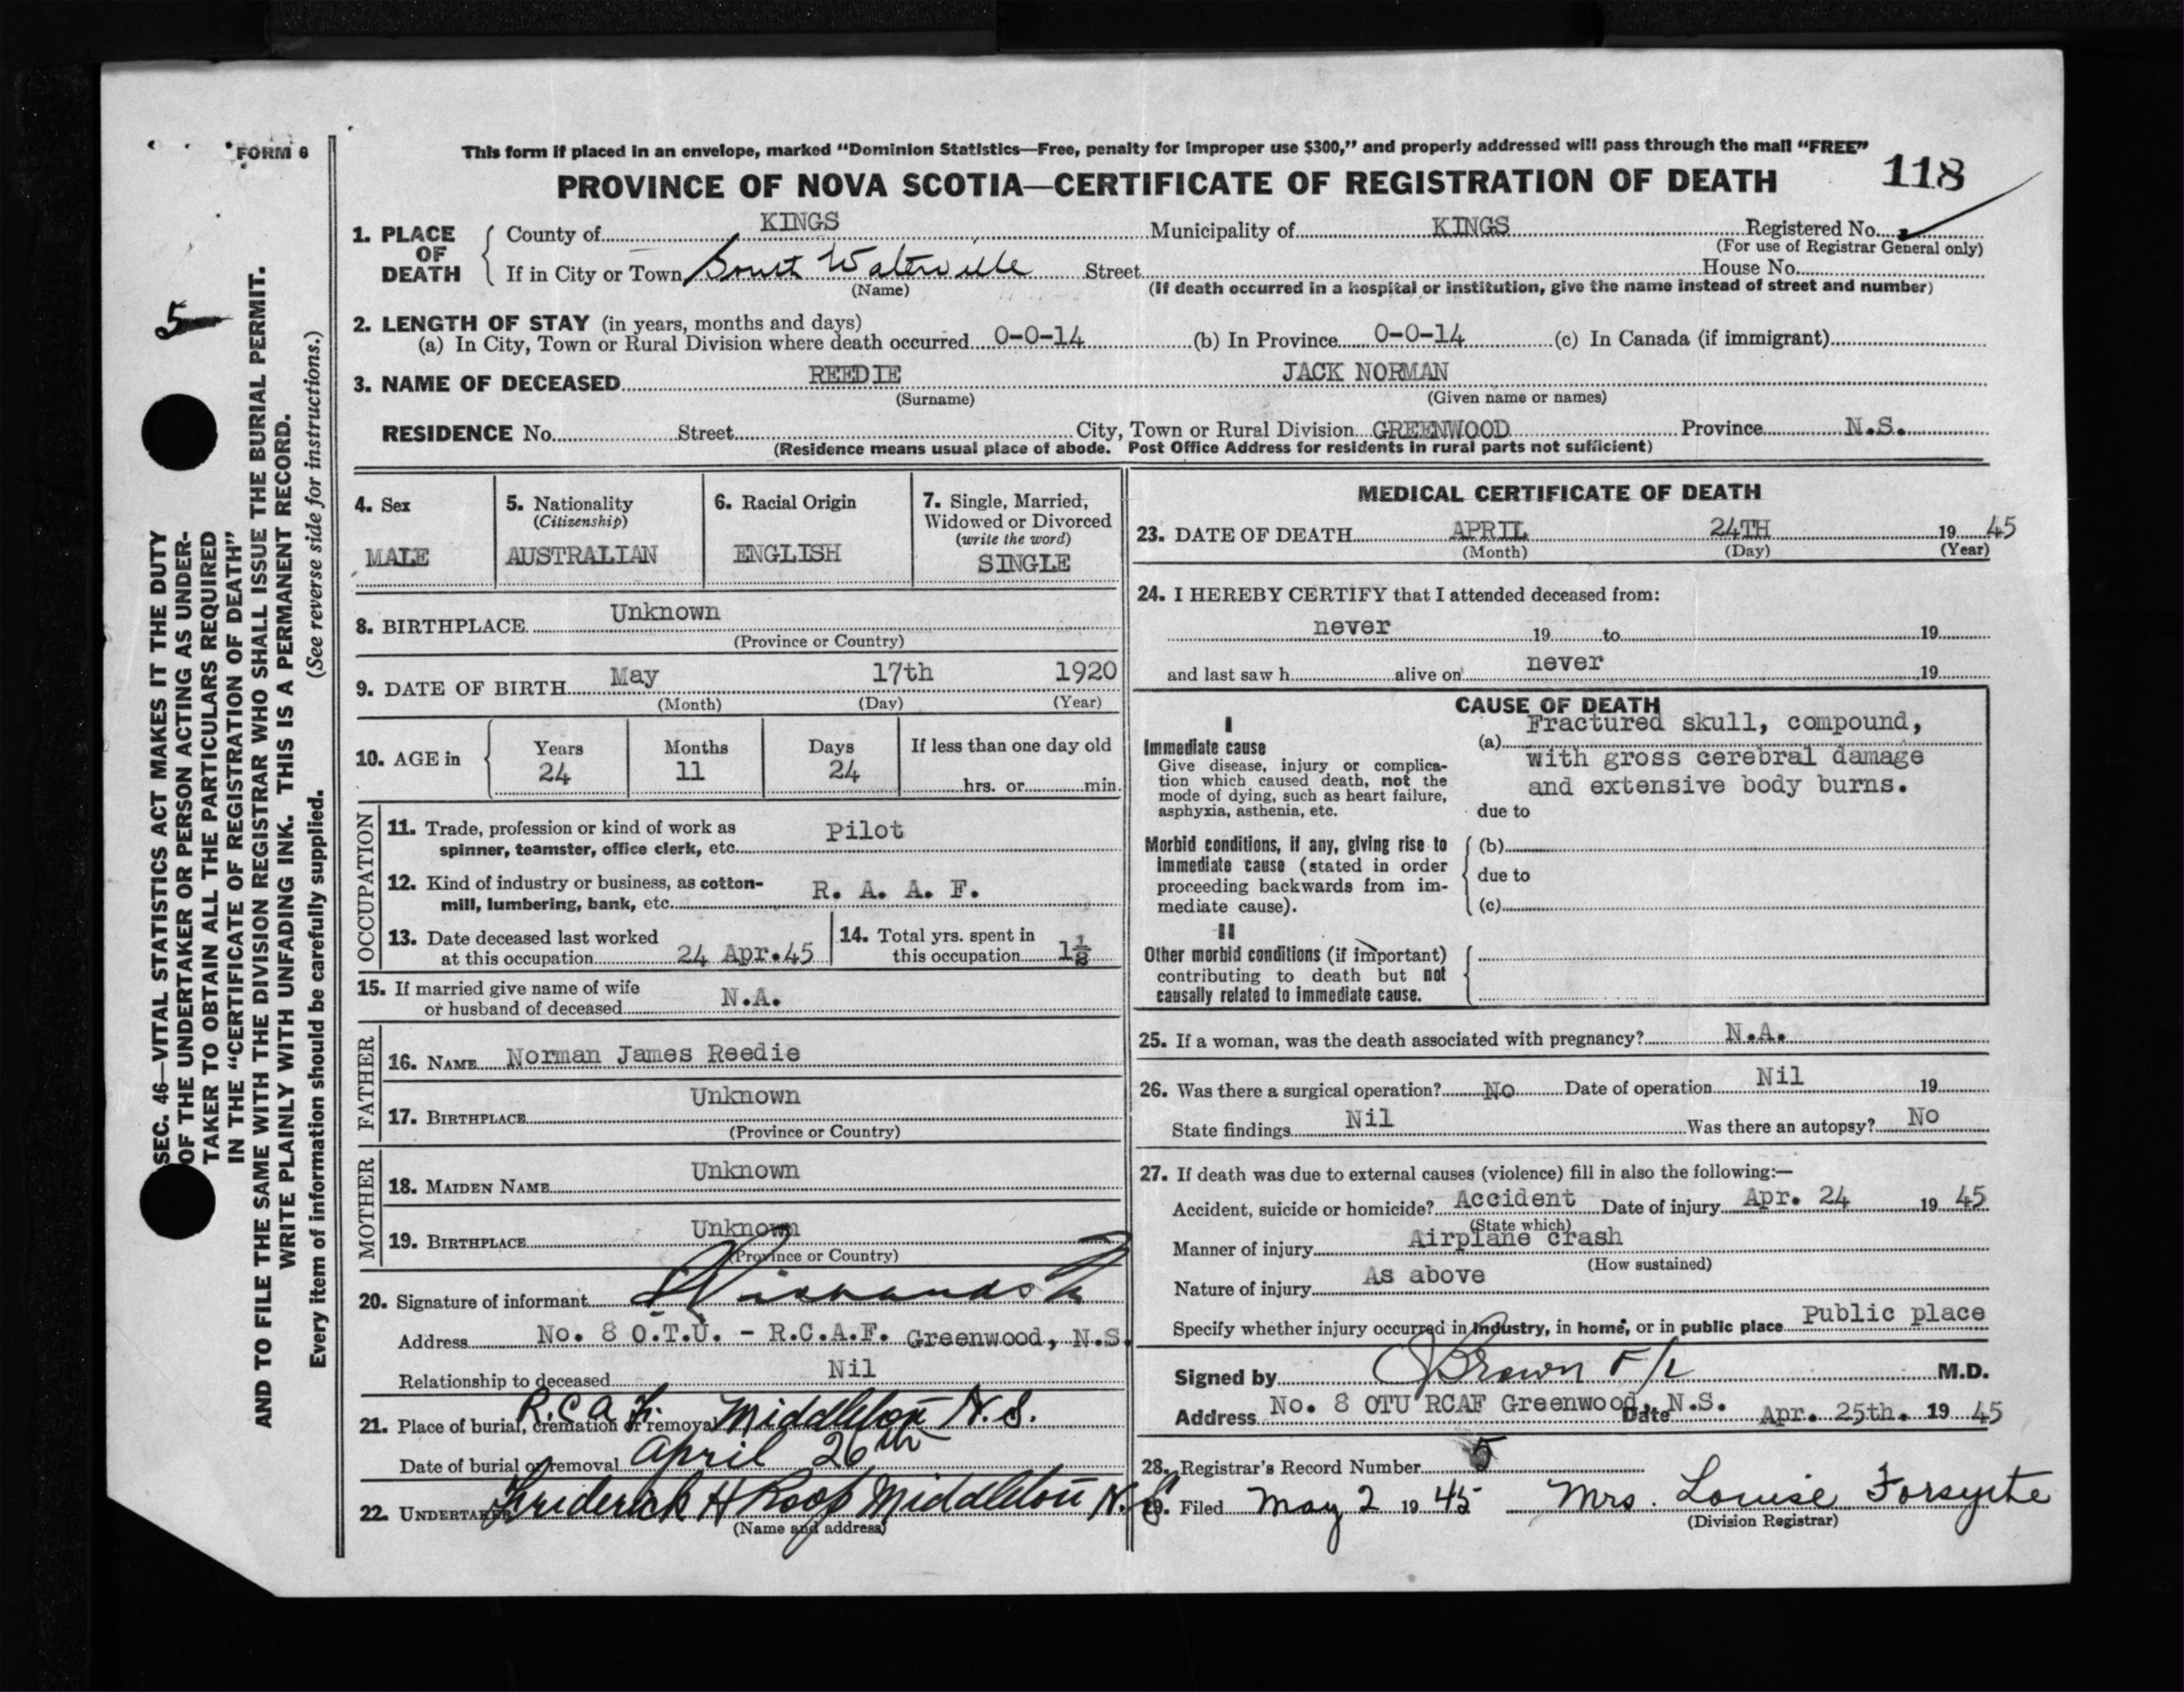 FORM 6
This form if placed in an envelope, marked "Dominion Statistics—Free, penalty for improper use $300," and properly addressed will pass through the mail "FREE"
PROVINCE OF NOVA SCOTIA—CERTIFICATE OF REGISTRATION OF DEATH 118
1. PLACE OF DEATH County of KINGS Municipality of KINGS Registered No.
(For use of Registrar General only)
If in City or Town South Waterville Street House No.
(Name) (If death occurred in a hospital or institution, give the name instead of street and number)
2. LENGTH OF STAY (in years, months and days)
(a) In City, Town or Rural Division where death occurred 0-0-14 (b) In Province 0-0-14 (c) In Canada (if immigrant)
3. NAME OF DECEASED REEDIE JACK NORMAN
(Surname) (Given name or names)
RESIDENCE No. Street City, Town or Rural Division GREENWOOD Province N.S.
(Residence means usual place of abode. Post Office Address for residents in rural parts not sufficient)
4. Sex
MALE
5. Nationality
(Citizenship)
AUSTRALIAN
6. Racial Origin
ENGLISH
7. Single, Married,
Widowed or Divorced
(write the word)
SINGLE
8. BIRTHPLACE Unknown
(Province or Country)
9. DATE OF BIRTH May 17th 1920
(Month) (Day) (Year)
10. AGE in Years Months Days If less than one day old
24 11 24 hrs. or min.
OCCUPATION
11. Trade, profession or kind of work as
spinner, teamster, office clerk, etc. Pilot
12. Kind of industry or business, as cotton-
mill, lumbering, bank, etc. R. A. A. F.
13. Date deceased last worked
at this occupation 24 Apr.45
14. Total yrs. spent in
this occupation 1½
15. If married give name of wife
or husband of deceased N.A.
FATHER
16. NAME Norman James Reedie
17. BIRTHPLACE Unknown
(Province or Country)
MOTHER
18. MAIDEN NAME Unknown
19. BIRTHPLACE Unknown
(Province or Country)
20. Signature of informant
Address No. 8 O.T.U. - R.C.A.F. Greenwood, N.S.
Relationship to deceased Nil
21. Place of burial, cremation or removal R.C.A.F. Middleton N.S.
Date of burial or removal April 26th
22. UNDERTAKER Frederick H Roop Middleton N.S.
(Name and address)
MEDICAL CERTIFICATE OF DEATH
23. DATE OF DEATH APRIL 24TH 19 45
(Month) (Day) (Year)
24. I HEREBY CERTIFY that I attended deceased from:
never 19 to 19
and last saw h alive on never 19
CAUSE OF DEATH
I
Immediate cause
Give disease, injury or complica-
tion which caused death, not the
mode of dying, such as heart failure,
asphyxia, asthenia, etc.
(a) Fractured skull, compound,
with gross cerebral damage
and extensive body burns.
due to
Morbid conditions, if any, giving rise to
immediate cause (stated in order
proceeding backwards from im-
mediate cause).
(b)
due to
(c)
II
Other morbid conditions (if important)
contributing to death but not
causally related to immediate cause.
25. If a woman, was the death associated with pregnancy? N.A.
26. Was there a surgical operation? No Date of operation Nil 19
State findings Nil Was there an autopsy? No
27. If death was due to external causes (violence) fill in also the following:—
Accident, suicide or homicide? Accident Date of injury Apr. 24 19 45
(State which)
Manner of injury Airplane crash
(How sustained)
Nature of injury As above
Specify whether injury occurred in industry, in home, or in public place Public place
Signed by JBrown F/L M.D.
Address No. 8 OTU RCAF Greenwood, N.S. Date Apr. 25th. 19 45
28. Registrar's Record Number 5
29. Filed May 2 19 45 Mrs. Louise Forsythe
(Division Registrar)
5
SEC. 46—VITAL STATISTICS ACT MAKES IT THE DUTY
OF THE UNDERTAKER OR PERSON ACTING AS UNDER-
TAKER TO OBTAIN ALL THE PARTICULARS REQUIRED
IN THE "CERTIFICATE OF REGISTRATION OF DEATH"
AND TO FILE THE SAME WITH THE DIVISION REGISTRAR WHO SHALL ISSUE THE BURIAL PERMIT.
WRITE PLAINLY WITH UNFADING INK. THIS IS A PERMANENT RECORD.
Every item of information should be carefully supplied. (See reverse side for instructions.)